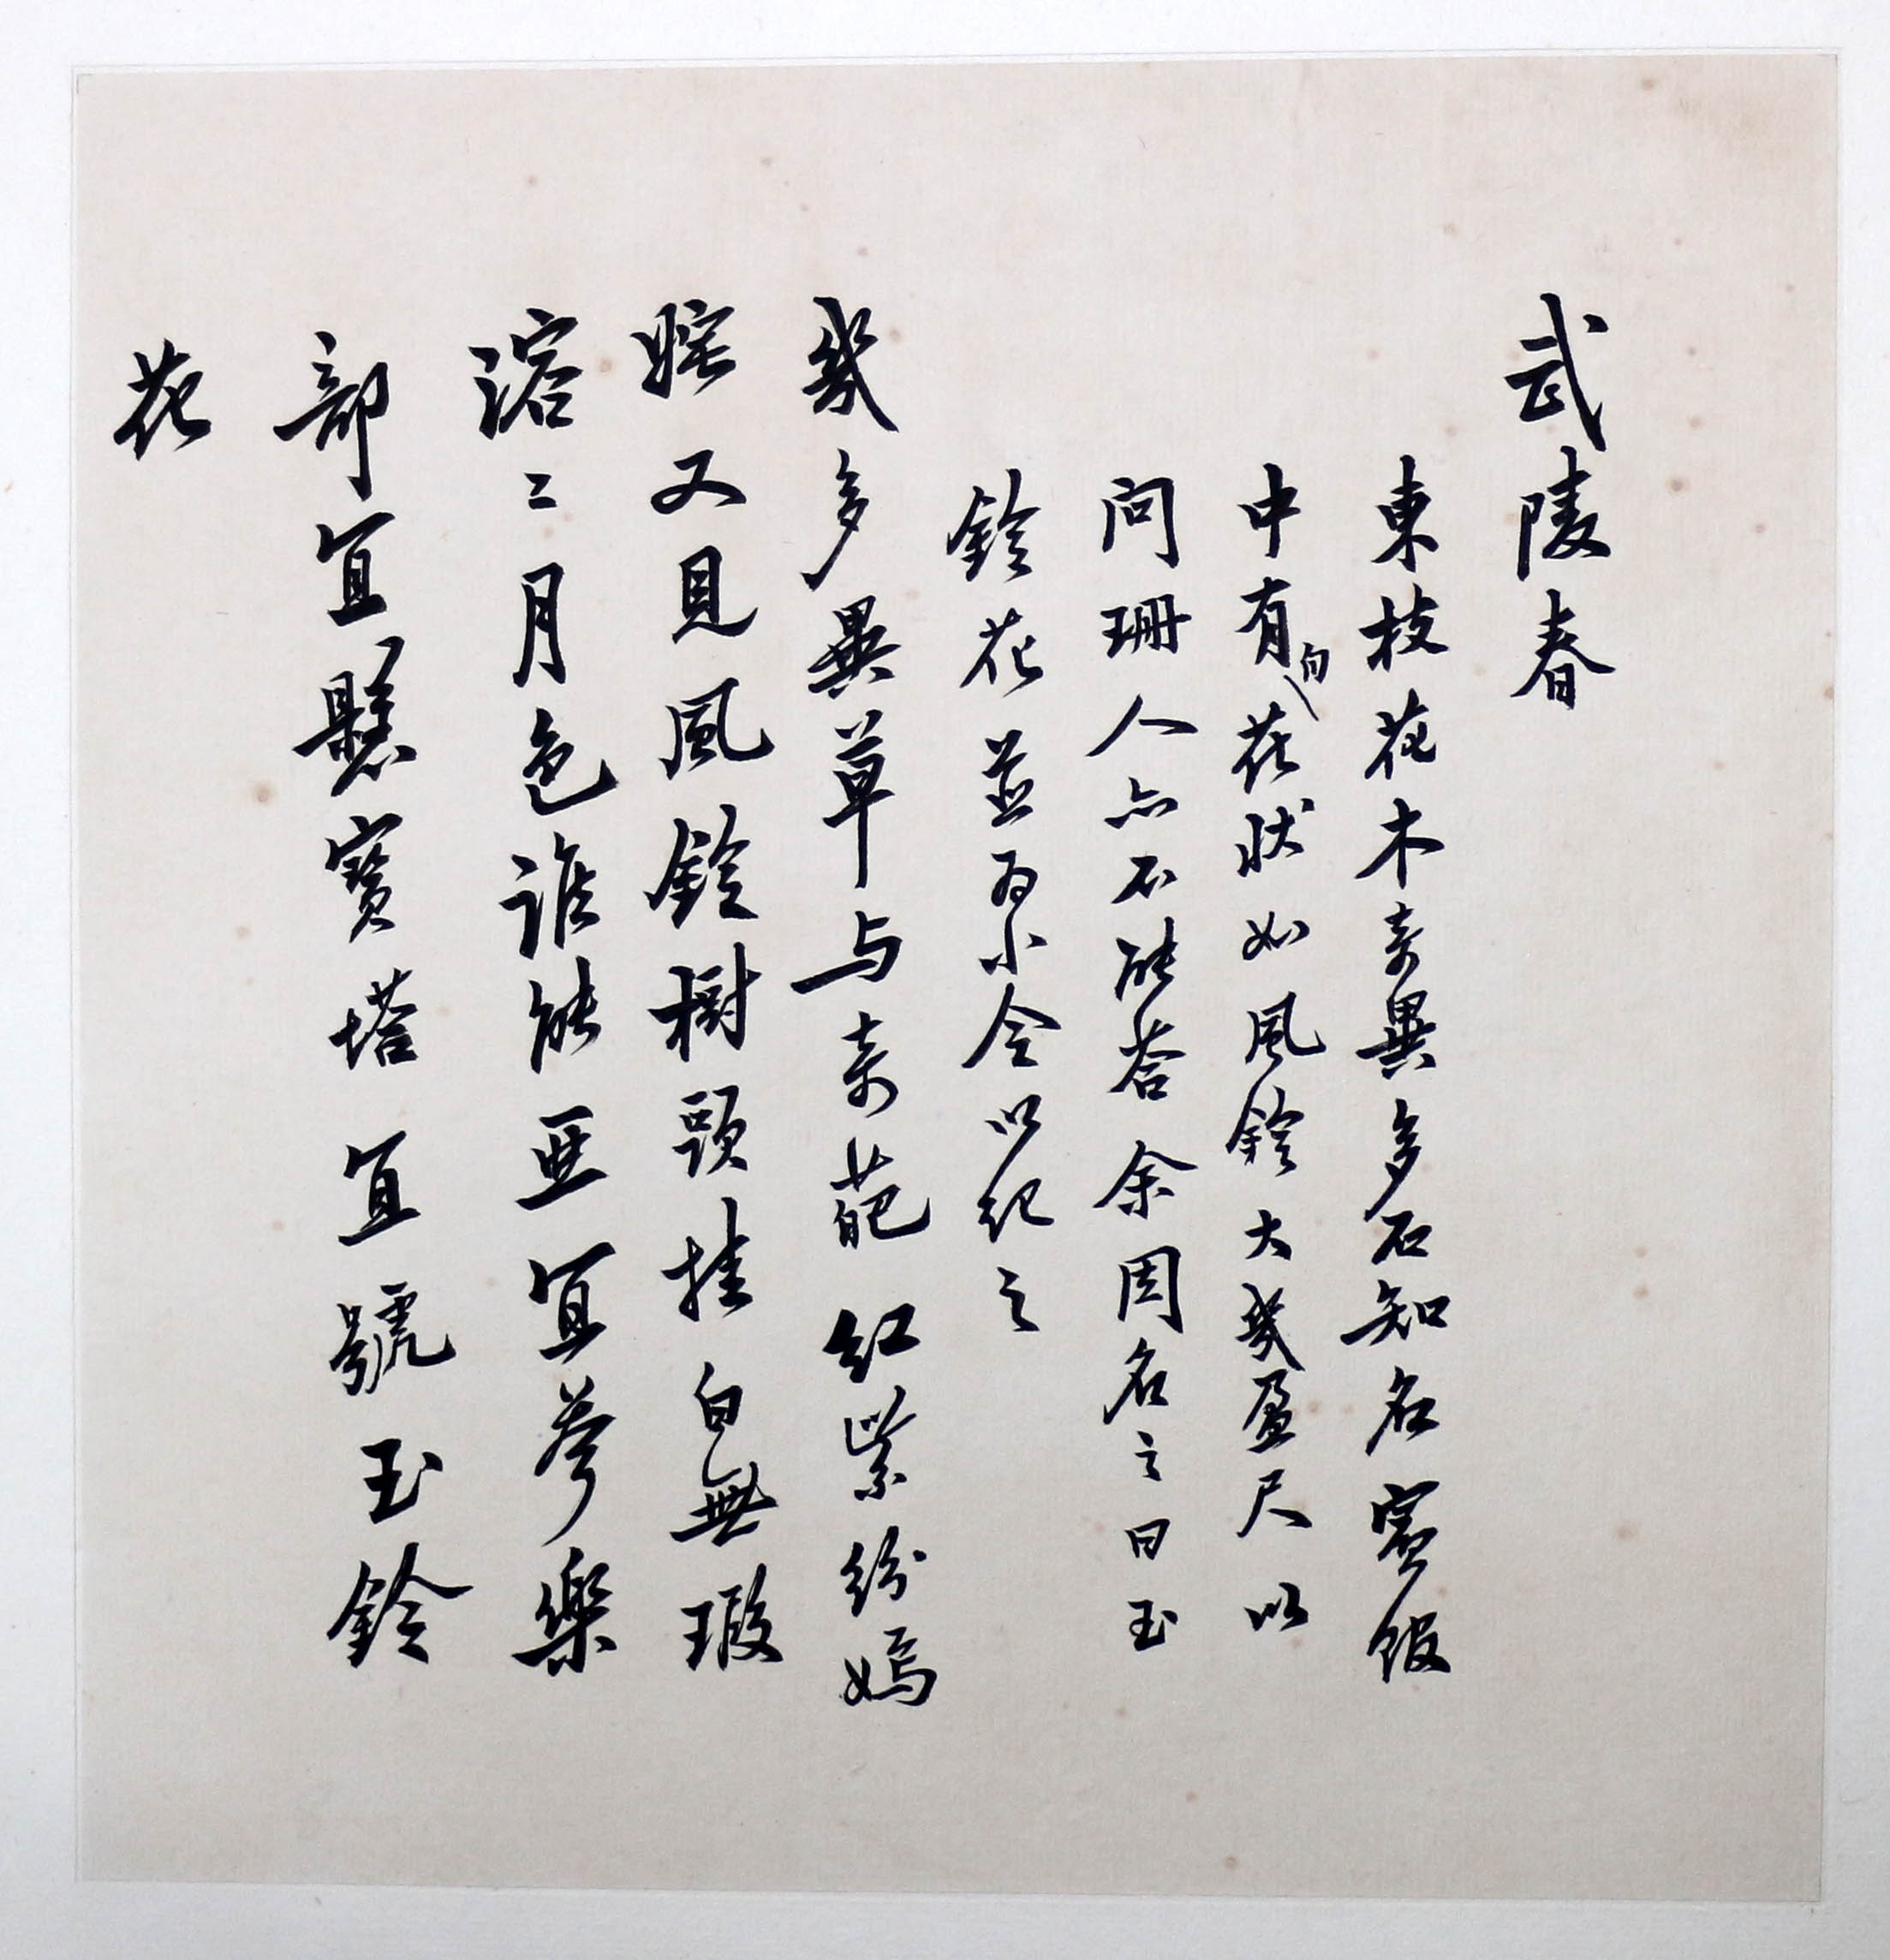 武陵春
東枝花木奇異多不知名賓館
中有白花狀如風鈴大幾盈尺以
問珊人亦不能荅余因名之曰玉
鈴花並為小令以紀之
幾多異草与奇葩紅紫紛嫣
姹又見風鈴樹頭挂白無瑕
溶々月色誰能亞宜參樂
部宜懸寶塔宜號玉鈴
花